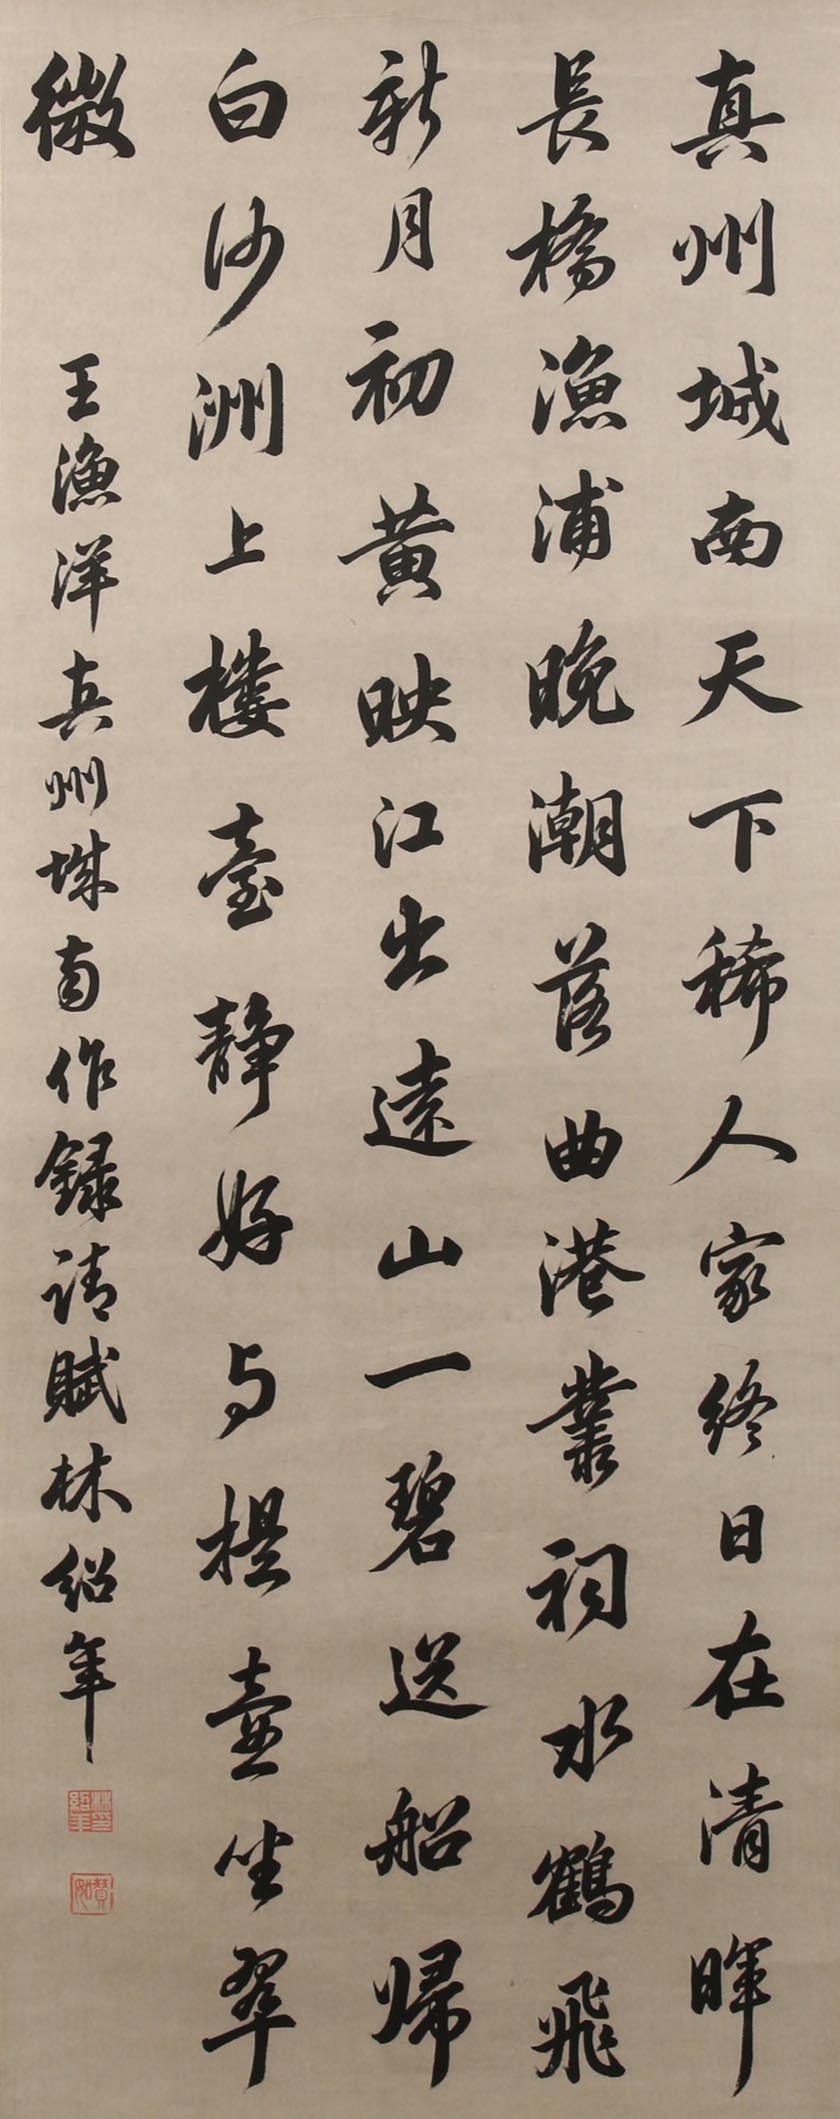 真州城南天下稀人家終日在清暉
長橋漁浦晚潮落曲港叢祠水鶴飛
新月初黃映江出遠山一碧送船歸
白沙洲上樓臺靜好與提壺坐翠
微
王漁洋真州城南作錄請賦林紹年
林紹年印